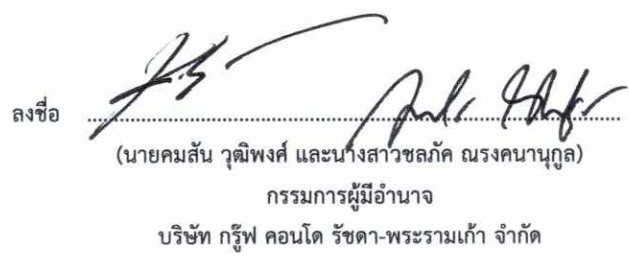 ลงชื่อ ........................................................
(นายคมสัน วุฒิพงศ์ และนางสาวชลภัค ณรงคนานุกูล)
กรรมการผู้มีอำนาจ
บริษัท กรู๊ฟ คอนโด รัชดา-พระรามเก้า จำกัด